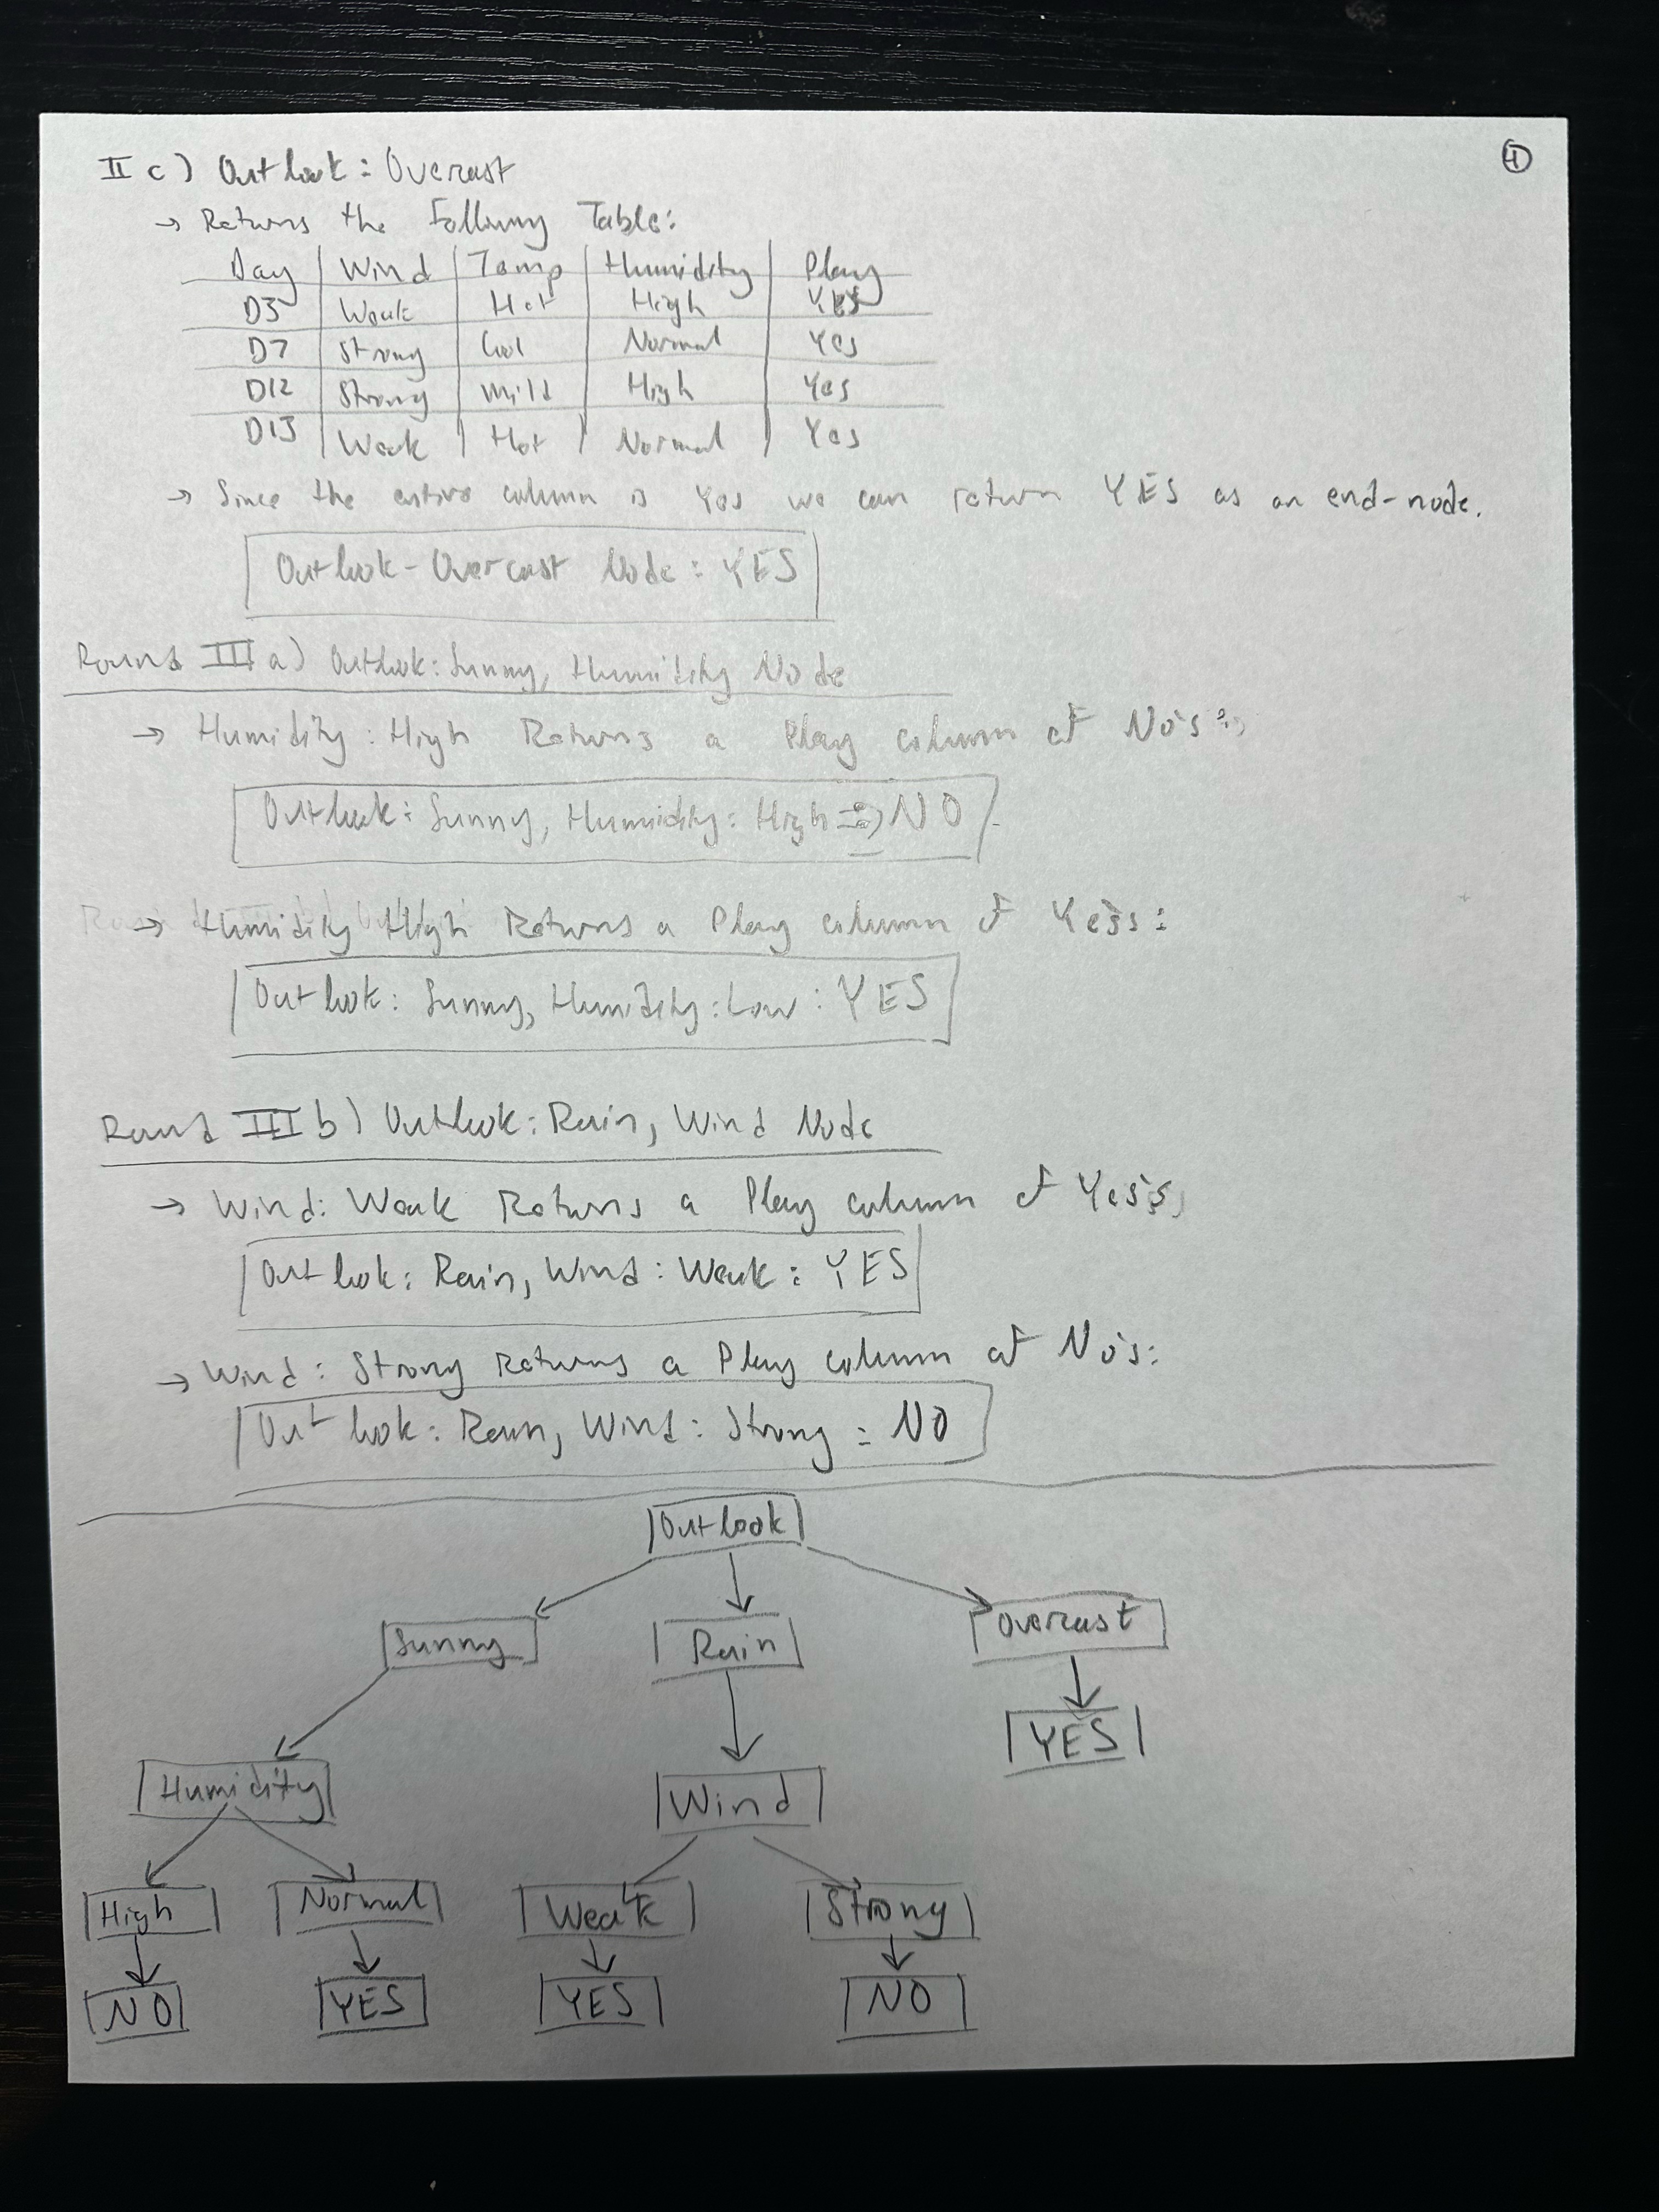 II c) Outlook: Overcast
④
→ Returns the Following Table:
Day | Wind | Temp | Humidity | Play
D3 | Weak | Hot | High | YES
D7 | Strong | Cool | Normal | Yes
D12 | Strong | Mild | High | Yes
D13 | Weak | Hot | Normal | Yes
→ Since the entire column is Yes we can return YES as an end-node.
Outlook-Overcast Node: YES
Round III a) Outlook: Sunny, Humidity Node
→ Humidity: High Returns a Play column of No's:
Outlook: Sunny, Humidity: High → NO
→ Humidity High Returns a Play column of Yes's:
Outlook: Sunny, Humidity: Low: YES
Round III b) Outlook: Rain, Wind Node
→ Wind: Weak Returns a Play column of Yes's,
Outlook: Rain, Wind: Weak: YES
→ Wind: Strong Returns a Play column of No's:
Outlook: Rain, Wind: Strong = NO
Outlook
Sunny Rain Overcast
YES
Humidity Wind
High Normal Weak Strong
NO YES YES NO